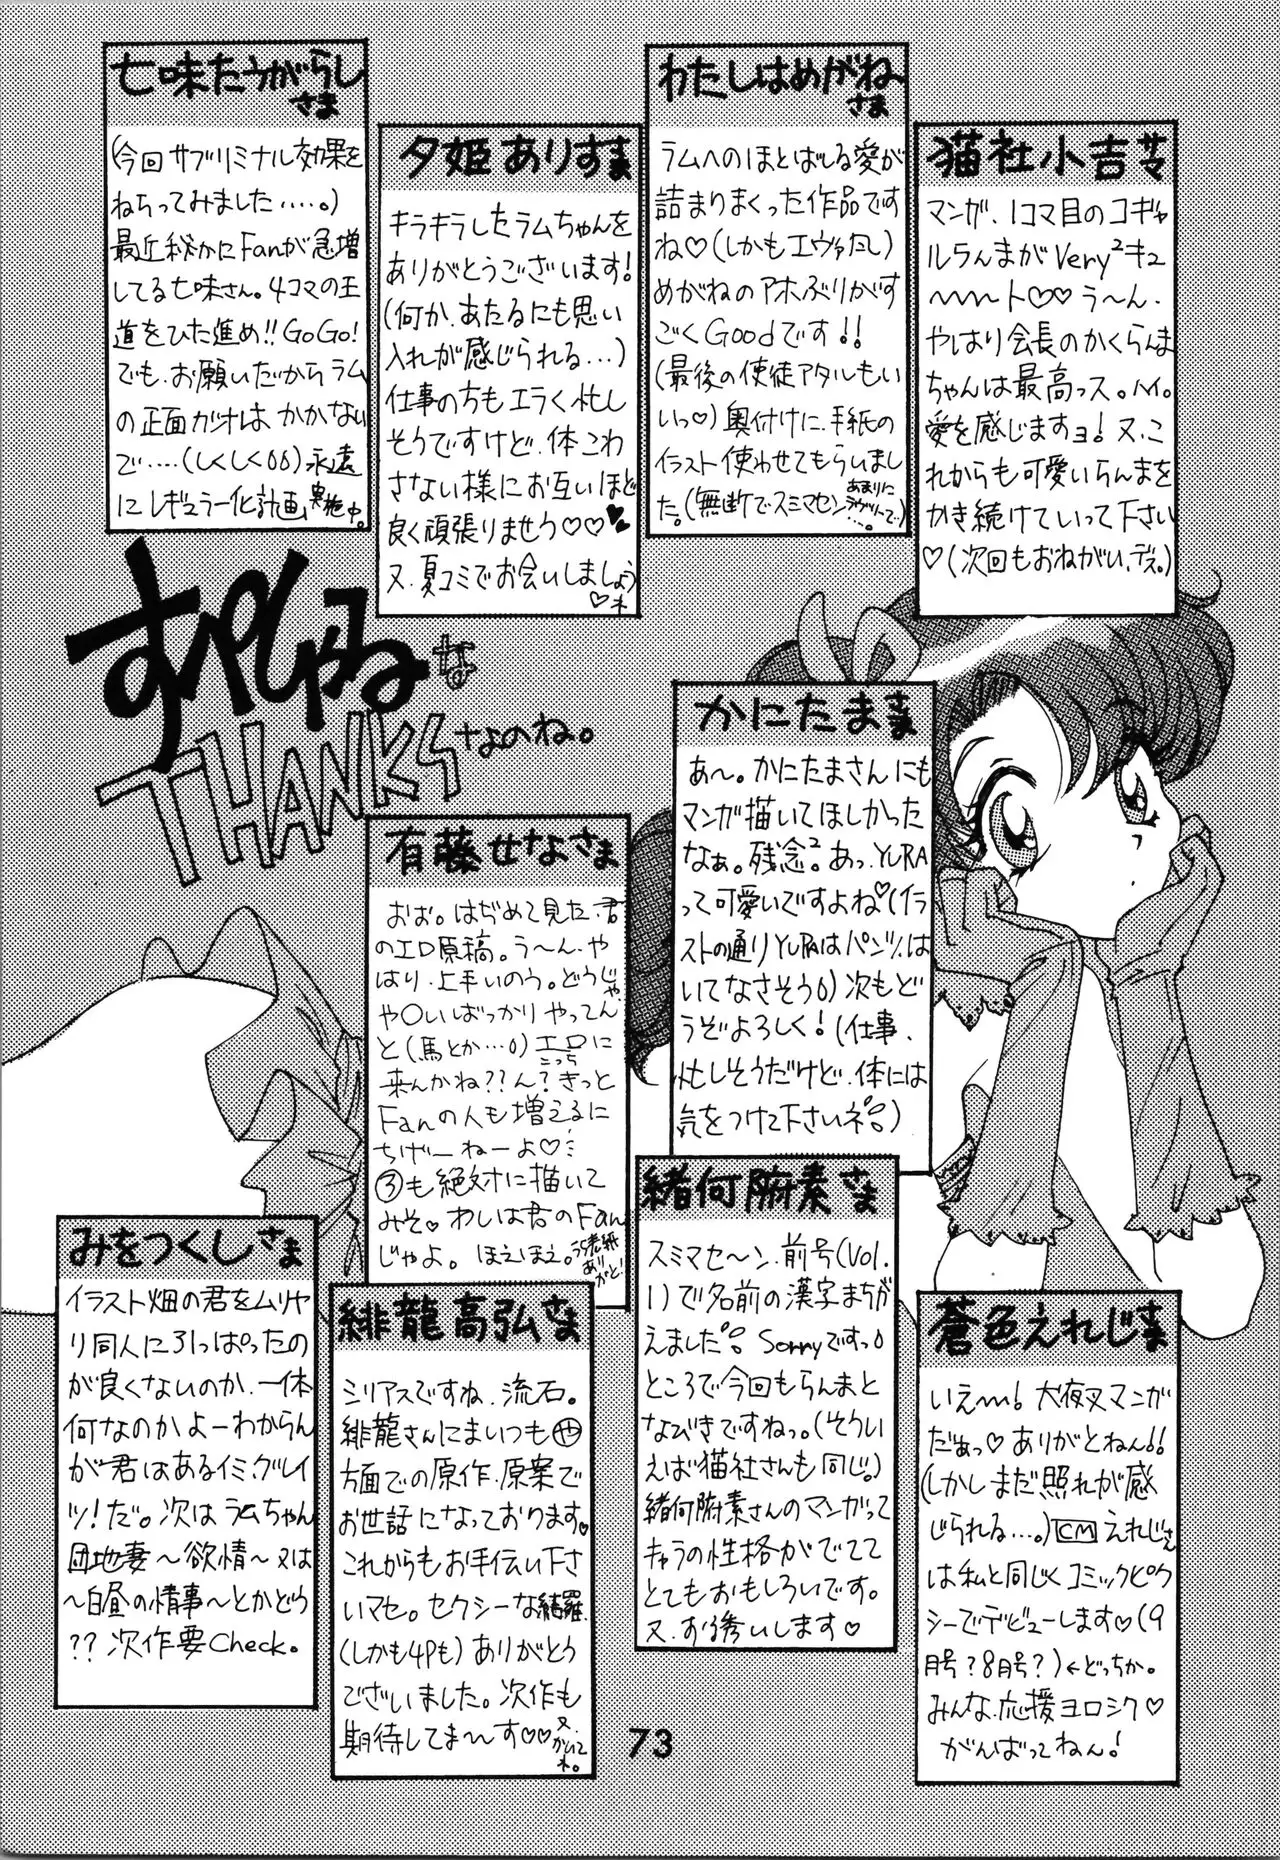 七味たうがらしさま
(今回サブリミナル効果を
ねらってみました‥‥。)
最近密かにFanが急増
してる七味さん。4コマの王
道をひた進め!!GoGo!
でも、お願いだからラム
の正面ガオはかかない
で‥‥(しくしく)永遠
にレギュラー化計画実施中。
夕姫ありすさま
キラキラしたラムちゃんを
ありがとうございます!
(何か、あたるにも思い
入れが感じられる…)
仕事の方もエラく忙し
そうですけど、体こわ
さない様にお互いほど
良く頑張りませう♡♡♥
又、夏コミでお会いしましょう
♡ネ
わたしはめがねさま
ラムへのほとばしる愛が
詰まりまくった作品です
ね♡(しかもエヴァだし)
めがねのアホぶりがす
ごくGoodです!!
(最後の使徒アタルもい
いっ♡)奥付けに、手紙の
イラスト使わせてもらいまし
た。(無断でスミマセンあまりにラヴリィで)…。
猫社小吉サマ
マンガ、1コマ目のコギャ
ルらんまがVery²キュ
〜〜〜ト♡♡う〜ん、
やはり会長のかくらんま
ちゃんは最高っス。ハイ。
愛を感じますョ!又、こ
れからも可愛いらんまを
かき続けていって下さい
♡(次回もおねがい、デス。)
すぺしゃるな
THANKSなのね。
かにたまさま
あ〜。かにたまさんにも
マンガ描いてほしかった
なぁ。残念²。あっ、YURA
って可愛いですよね♡(イラ
ストの通りYURAはパンツ、は
いてなさそう)次もど
うぞよろしく!(仕事、
忙しそうだけど、体には
気をつけて下さいネ)
有藤せなさま
おお。はぢめて見た、君
のエロ原稿。う〜ん、や
はり、上手いのう。どうじゃ、
や〇いばっかりやってん
と(馬とか…)エロこっちに
来んかね??ん?きっと
Fanの人も増えるに
ちげーねーよ♡
③も絶対に描いて
みそ♡わしは君のFan
じゃよ。ほえほえ。うら表紙ありがと!
緒何腑素さま
スミマセ〜ン、前号(Vol.
1)で名前の漢字まちが
えました。Sorryですっ
ところで今回もらんまと
なびきですねっ。(そうい
えば猫社さんも同じ。)
緒何腑素さんのマンガって
キャラの性格がでてて
とてもおもしろいです。
又、お誘いします♡
みをつくしさま
イラスト畑の君をムリや
り同人に引っぱったの
が良くないのか、一体
何なのかよーわからん
が君はあるイミ、グレイ
ツ!だ。次はラムちゃん
団地妻〜欲情〜又は
〜白昼の情事〜とかどう
??次作要Check。
緋龍高弘さま
シリアスですね、流石。
緋龍さんにまいつもや
方面での原作、原案で
お世話になっております♡
これからもお手伝い下さ
いマセ。セクシーな綺羅、
(しかも4Pも)ありがとう
ございました。次作も
期待してま〜す♡♡又、かいてネ。
蒼色えれじさま
いえ〜!犬夜叉マンガ
だぁっ♡ありがとねん!!
(しかしまだ照れが感
じられる…。)CMえれじさん
は私と同じくコミックピク
シーでデビューします♡(9
月号?8月号?)←どっちか。
みんな、応援ヨロシク♡
がんばってねん!
73